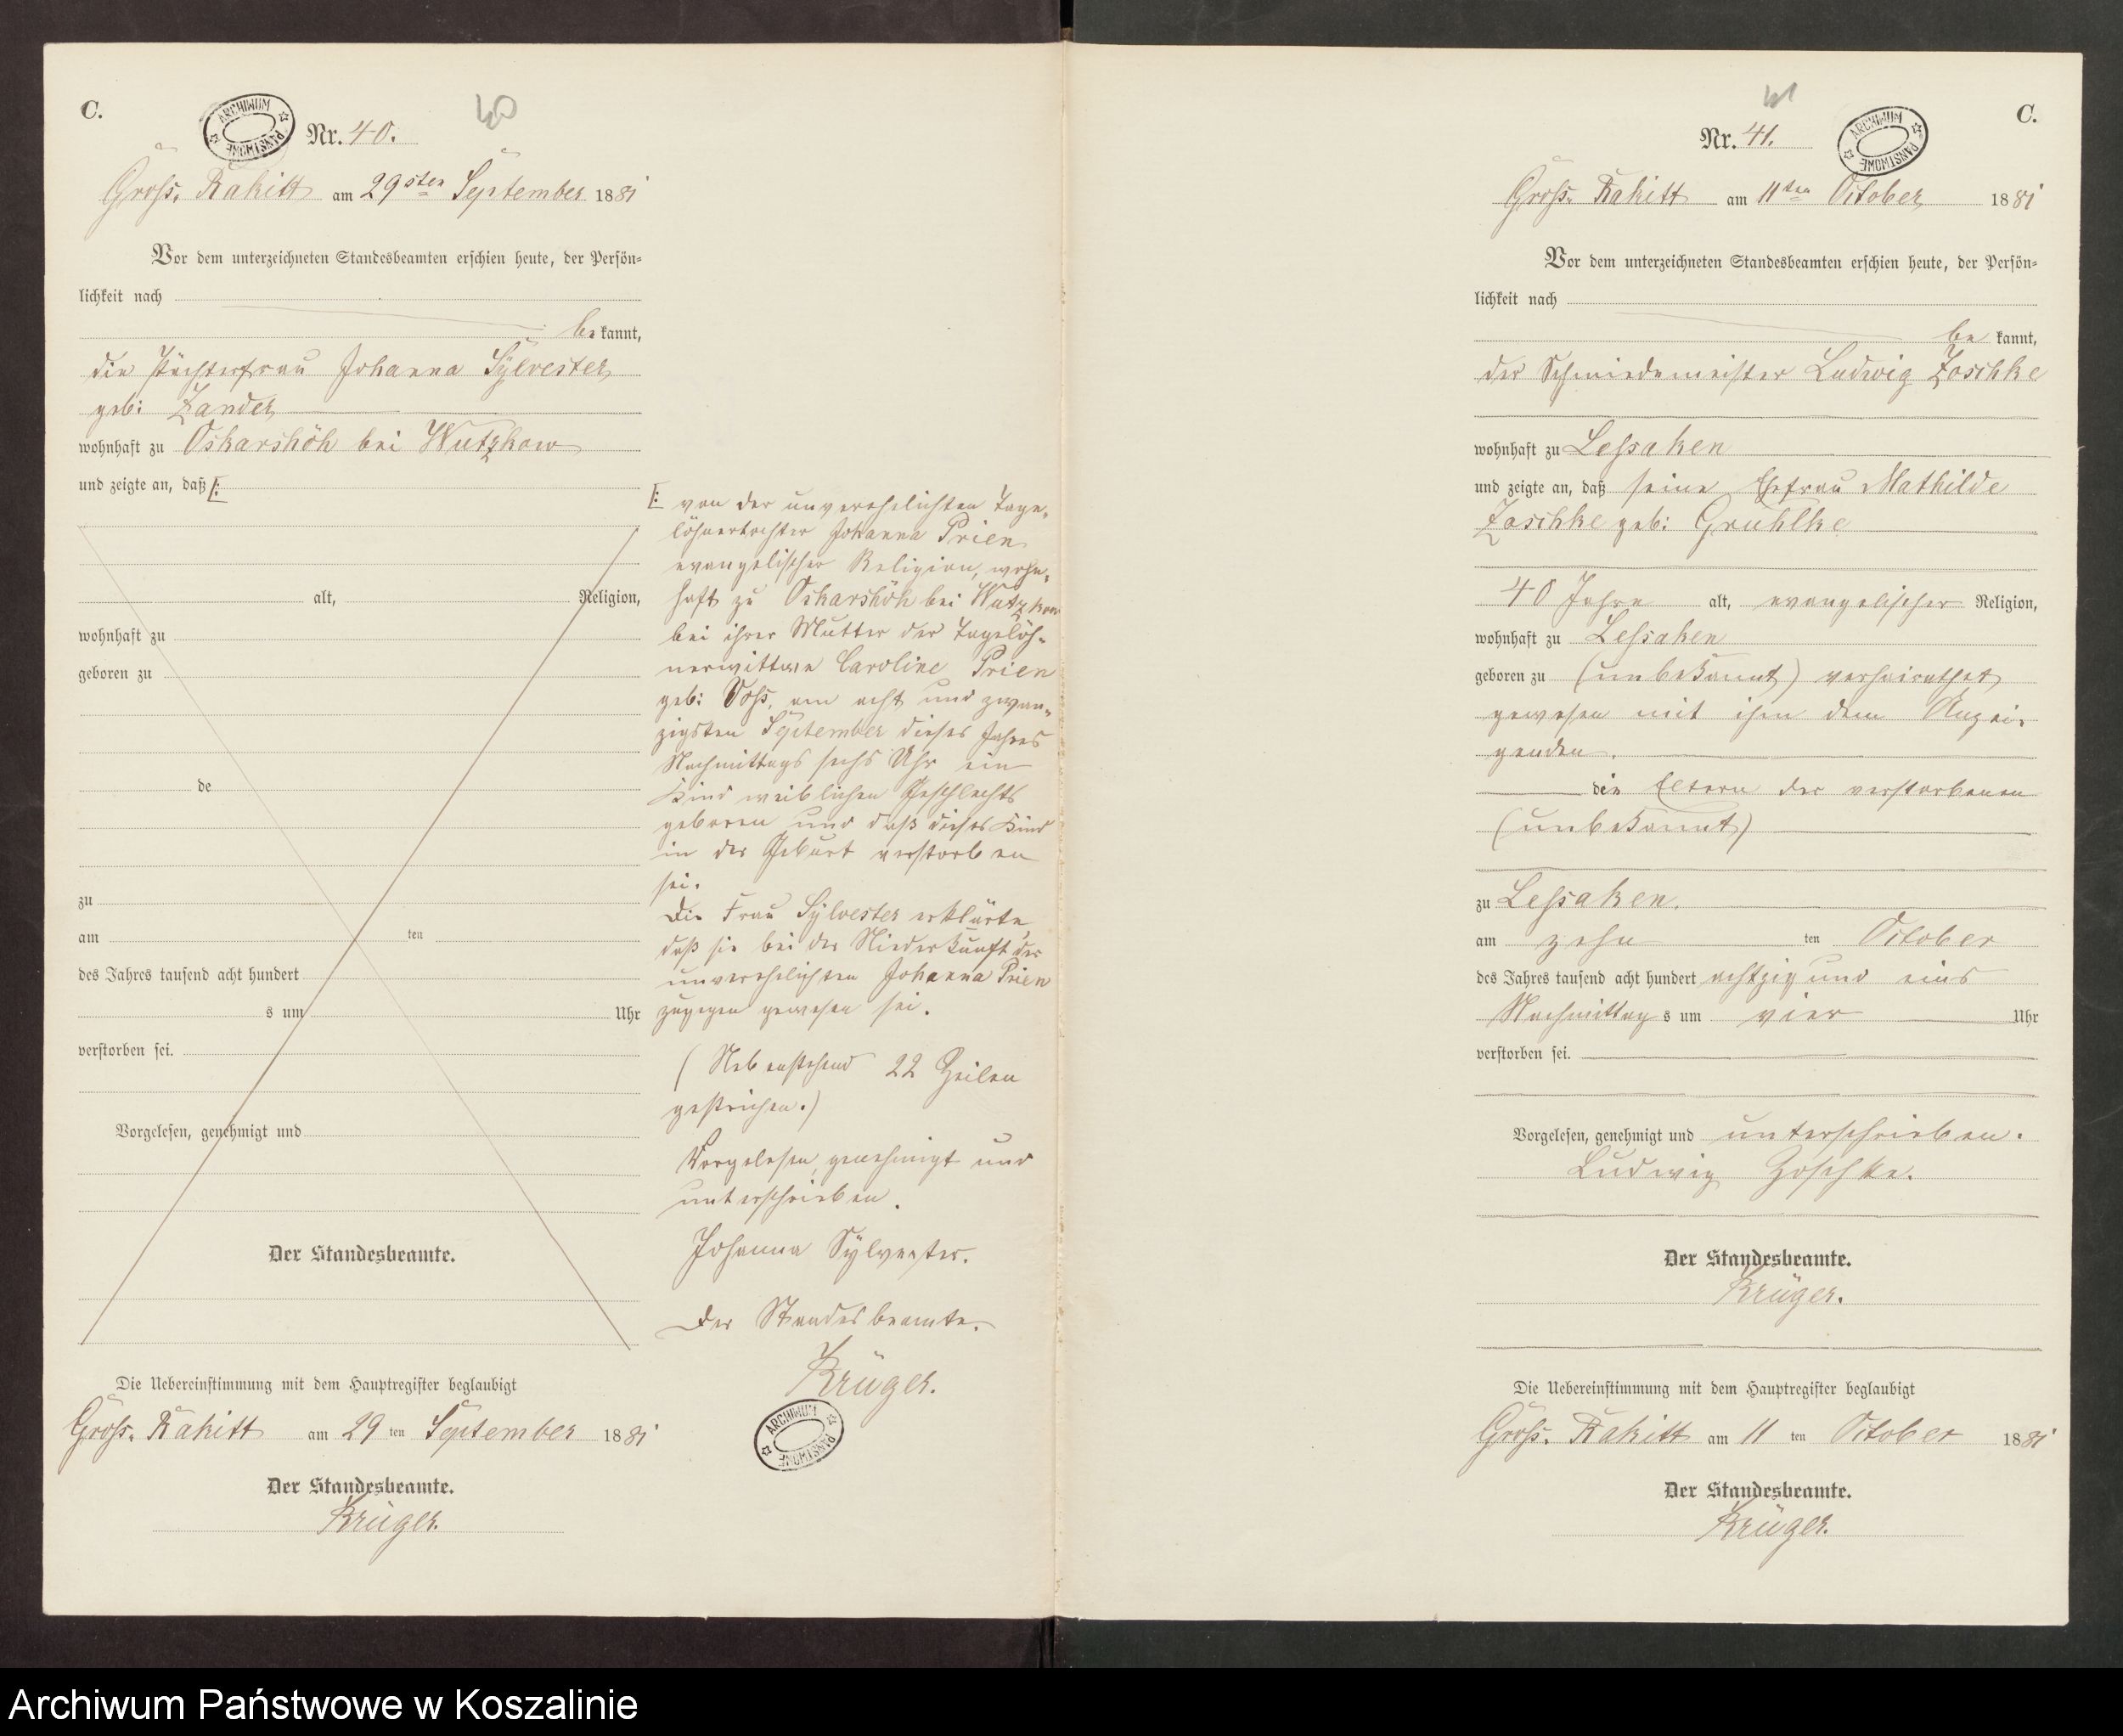 C.
ARCHIWUM PAŃSTWOWE
Nr. 40.
40
Gross. Rakitt am 29sten September 1881
Vor dem unterzeichneten Standesbeamten erschien heute, der Persön-
lichkeit nach
be kannt,
die Pächterfrau Johanna Sylvester
geb: Zander
wohnhaft zu Oskarshöh bei Wutzkow
und zeigte an, daß [:
alt, Religion,
wohnhaft zu
geboren zu
de
zu
am ten
des Jahres tausend acht hundert
s um Uhr
verstorben sei.
Vorgelesen, genehmigt und
Der Standesbeamte.
Die Uebereinstimmung mit dem Hauptregister beglaubigt
Gross. Rakitt am 29 ten September 1881
Der Standesbeamte.
Krüger.
[: von der unverehelichten Tage-
löhnertochter Johanna Prien
evangelischer Religion, wohn-
haft zu Oskarshöh bei Wutzkow
bei ihrer Mutter der Tagelöh-
nerwittwe Caroline Prien
geb: Voss, am acht und zwan-
zigsten September dieses Jahres
Nachmittags sechs Uhr ein
Kind weiblichen Geschlechts
geboren und daß dieses Kind
in der Geburt verstorben
sei.
Die Frau Sylvester erklärte,
daß sie bei der Niederkunft der
unverehelichten Johanna Prien
zugegen gewesen sei.
(Nebenstehend 22 Zeilen
gestrichen.)
Vorgelesen, genehmigt und
unterschrieben.
Johanna Sylvester.
Der Standesbeamte.
Krüger.
ARCHIWUM PAŃSTWOWE
41
C.
Nr. 41.
ARCHIWUM PAŃSTWOWE
Gross. Rakitt am 11ten October 1881
Vor dem unterzeichneten Standesbeamten erschien heute, der Persön-
lichkeit nach
be kannt,
der Schmiedemeister Ludwig Zoschke
wohnhaft zu Lessaken
und zeigte an, daß seine Ehefrau Mathilde
Zoschke geb: Gruhlke
40 Jahre alt, evangelischer Religion,
wohnhaft zu Lessaken
geboren zu (unbekannt) verheirathet
gewesen mit ihm dem Anzei-
genden.
die Eltern der verstorbenen
(unbekannt)
zu Lessaken.
am zehn ten October
des Jahres tausend acht hundert achtzig und eins
Nachmittag s um vier Uhr
verstorben sei.
Vorgelesen, genehmigt und unterschrieben.
Ludwig Zoschke.
Der Standesbeamte.
Krüger.
Die Uebereinstimmung mit dem Hauptregister beglaubigt
Gross. Rakitt am 11 ten October 1881
Der Standesbeamte.
Krüger.
Archiwum Państwowe w Koszalinie